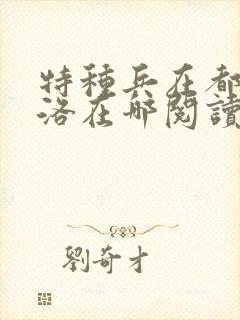 特種兵在都
洛在哪閱讀
劉奇才